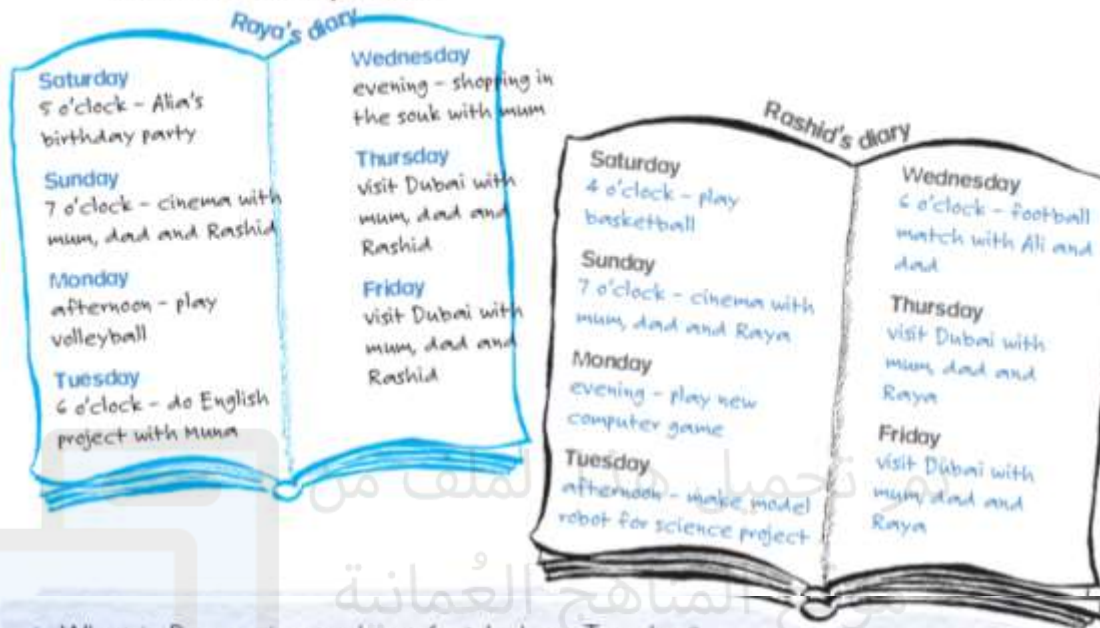 Raya's diary
Saturday
5 o'clock - Alia's
birthday party
Sunday
7 o'clock - cinema with
mum, dad and Rashid
Monday
afternoon - play
volleyball
Tuesday
6 o'clock - do English
project with Muna
Wednesday
evening - shopping in
the souk with mum
Thursday
visit Dubai with
mum, dad and
Rashid
Friday
visit Dubai with
mum, dad and
Rashid
Rashid's diary
Saturday
4 o'clock - play
basketball
Sunday
7 o'clock - cinema with
mum, dad and Raya
Monday
evening - play new
computer game
Tuesday
afternoon - make model
robot for science project
Wednesday
6 o'clock - football
match with Ali and
dad
Thursday
visit Dubai with
mum, dad and
Raya
Friday
visit Dubai with
mum, dad and
Raya
تم تحميل هذا الملف من
المناهج العُمانية